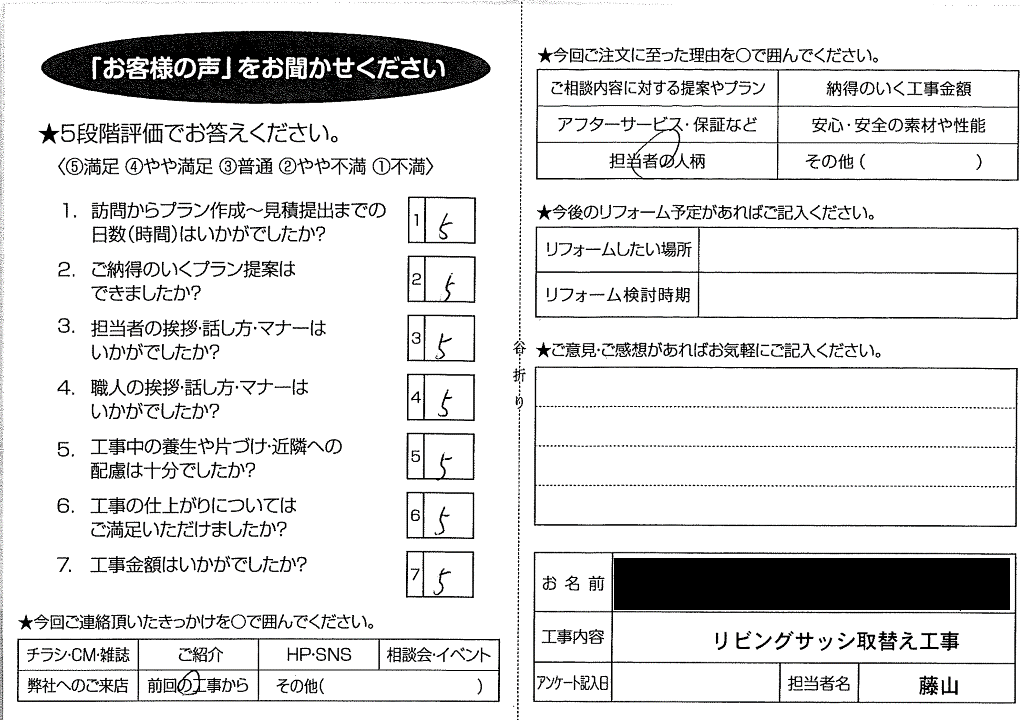 「お客様の声」をお聞かせください
★5段階評価でお答えください。
〈⑤満足 ④やや満足 ③普通 ②やや不満 ①不満〉
1. 訪問からプラン作成～見積提出までの
日数(時間)はいかがでしたか?
1 5
2. ご納得のいくプラン提案は
できましたか?
2 5
3. 担当者の挨拶・話し方・マナーは
いかがでしたか?
3 5
4. 職人の挨拶・話し方・マナーは
いかがでしたか?
4 5
5. 工事中の養生や片づけ・近隣への
配慮は十分でしたか?
5 5
6. 工事の仕上がりについては
ご満足いただけましたか?
6 5
7. 工事金額はいかがでしたか?
7 5
★今回ご連絡頂いたきっかけを○で囲んでください。
チラシ・CM・雑誌 ご紹介 HP・SNS 相談会・イベント
弊社へのご来店 前回の工事から その他( )
谷折り
★今回ご注文に至った理由を○で囲んでください。
ご相談内容に対する提案やプラン 納得のいく工事金額
アフターサービス・保証など 安心・安全の素材や性能
担当者の人柄 その他( )
★今後のリフォーム予定があればご記入ください。
リフォームしたい場所
リフォーム検討時期
★ご意見・ご感想があればお気軽にご記入ください。
お名前
工事内容 リビングサッシ取替え工事
アンケート記入日 担当者名 藤山